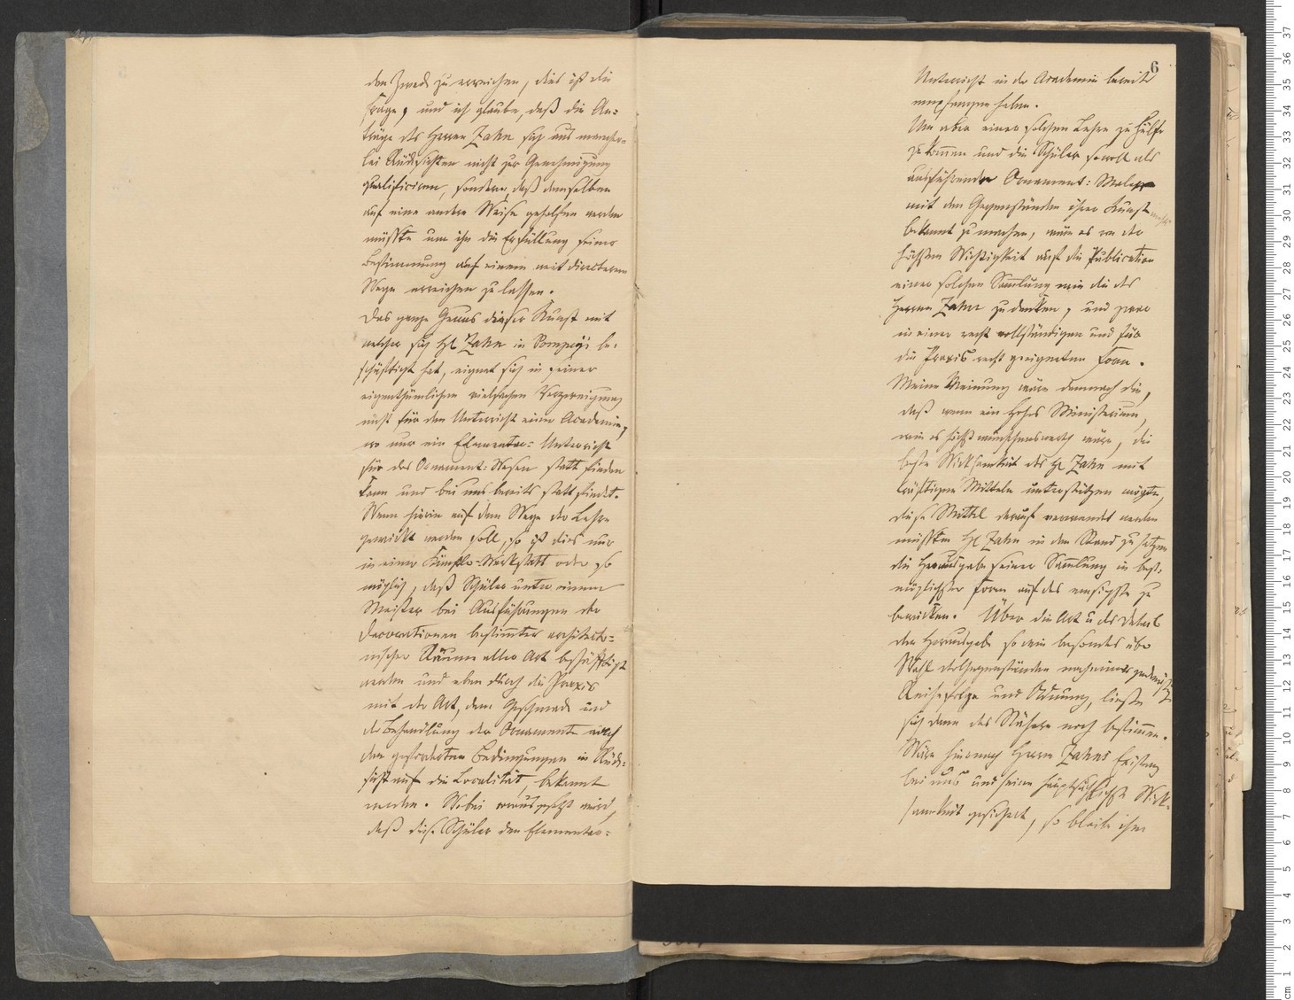 den Zweck zu erreichen, dies ist die
Frage, und ich glaube, daß die An-
träge des Herren Zahn sich aus mancher-
lei Rücksichten nicht zur Genehmigung
qualificiren, sondern, daß demselben
auf eine andere Weise geholfen werden
müßte um ihn die Erfüllung seiner
Bestimmung auf einem
Wege erreichen zu lassen.
Das ganze Genus dieser Kunst mit
welcher sich H Zahn in Pompeji be-
schäftigt hat, eignet sich in seiner
eigenthümlichen vielfachen Verzweigung
nicht für den Unterricht einer Academie,
wo nur ein Elementar-Unterricht
für das Ornament-Wesen statt finden
kann und bei uns bereits statt findet.
Wenn hierin auf dem Wege der Lehre
gewirkt werden soll, so ist dies nur
in einer Künstler-Werkstatt oder
möglich daß Schüler unter einem
Meister bei Ausführungen der
Decorationen bestimmter architecto-
nischer Räume aller Art beschäftigt
werden und eben durch die Praxis
mit der Art, dem Geschmack und
der Behandlung der Ornamente nach
den geforderten Bedingungen in Rück-
sicht auf die Localität, bekannt
werden. Wobei vorausgesetzt wird,
daß diese Schüler den Elementar-
6
Unterricht in der Academie bereits
empfangen haben.
Um aber einer solchen Lehre zu Hülfe
zu kommen und die Schüler sowohl als
ausführende Ornament-Maler
mit den Gegenständen ihrer Kunst
bekannt zu machen, wäre es von der
höchsten Wichtigkeit auf die Publication
einer solchen Samlung wie die des
Herren Zahn zu denken, und zwar
in einer recht vollständigen und für
die Praxis recht geeigneten Form.
Meine Meinung wäre demnach die,
daß wenn ein hohes Ministerium,
wie es höchst wünschenswerth wäre, die
Wirksamkeit des H Zahn mit
kräftigen Mitteln unterstützen mögte,
diese Mittel darauf verwendet werden
müßten H Zahn in den Stand zu setzen
die Herausgabe seiner Samlung in best-
möglichster Form auf das
bewirken. Über die Art u das Detail
der Herausgabe so wie besonders über
Wahl der Gegenstände
Reihefolge und Ordnung, ließe
sich dann das Nähere noch bestimmen.
Wäre hiernach Herrn Zahns Existenz
bei uns und seine hauptsächlichste Wirk-
samkeit gesichert, so bliebe ihm